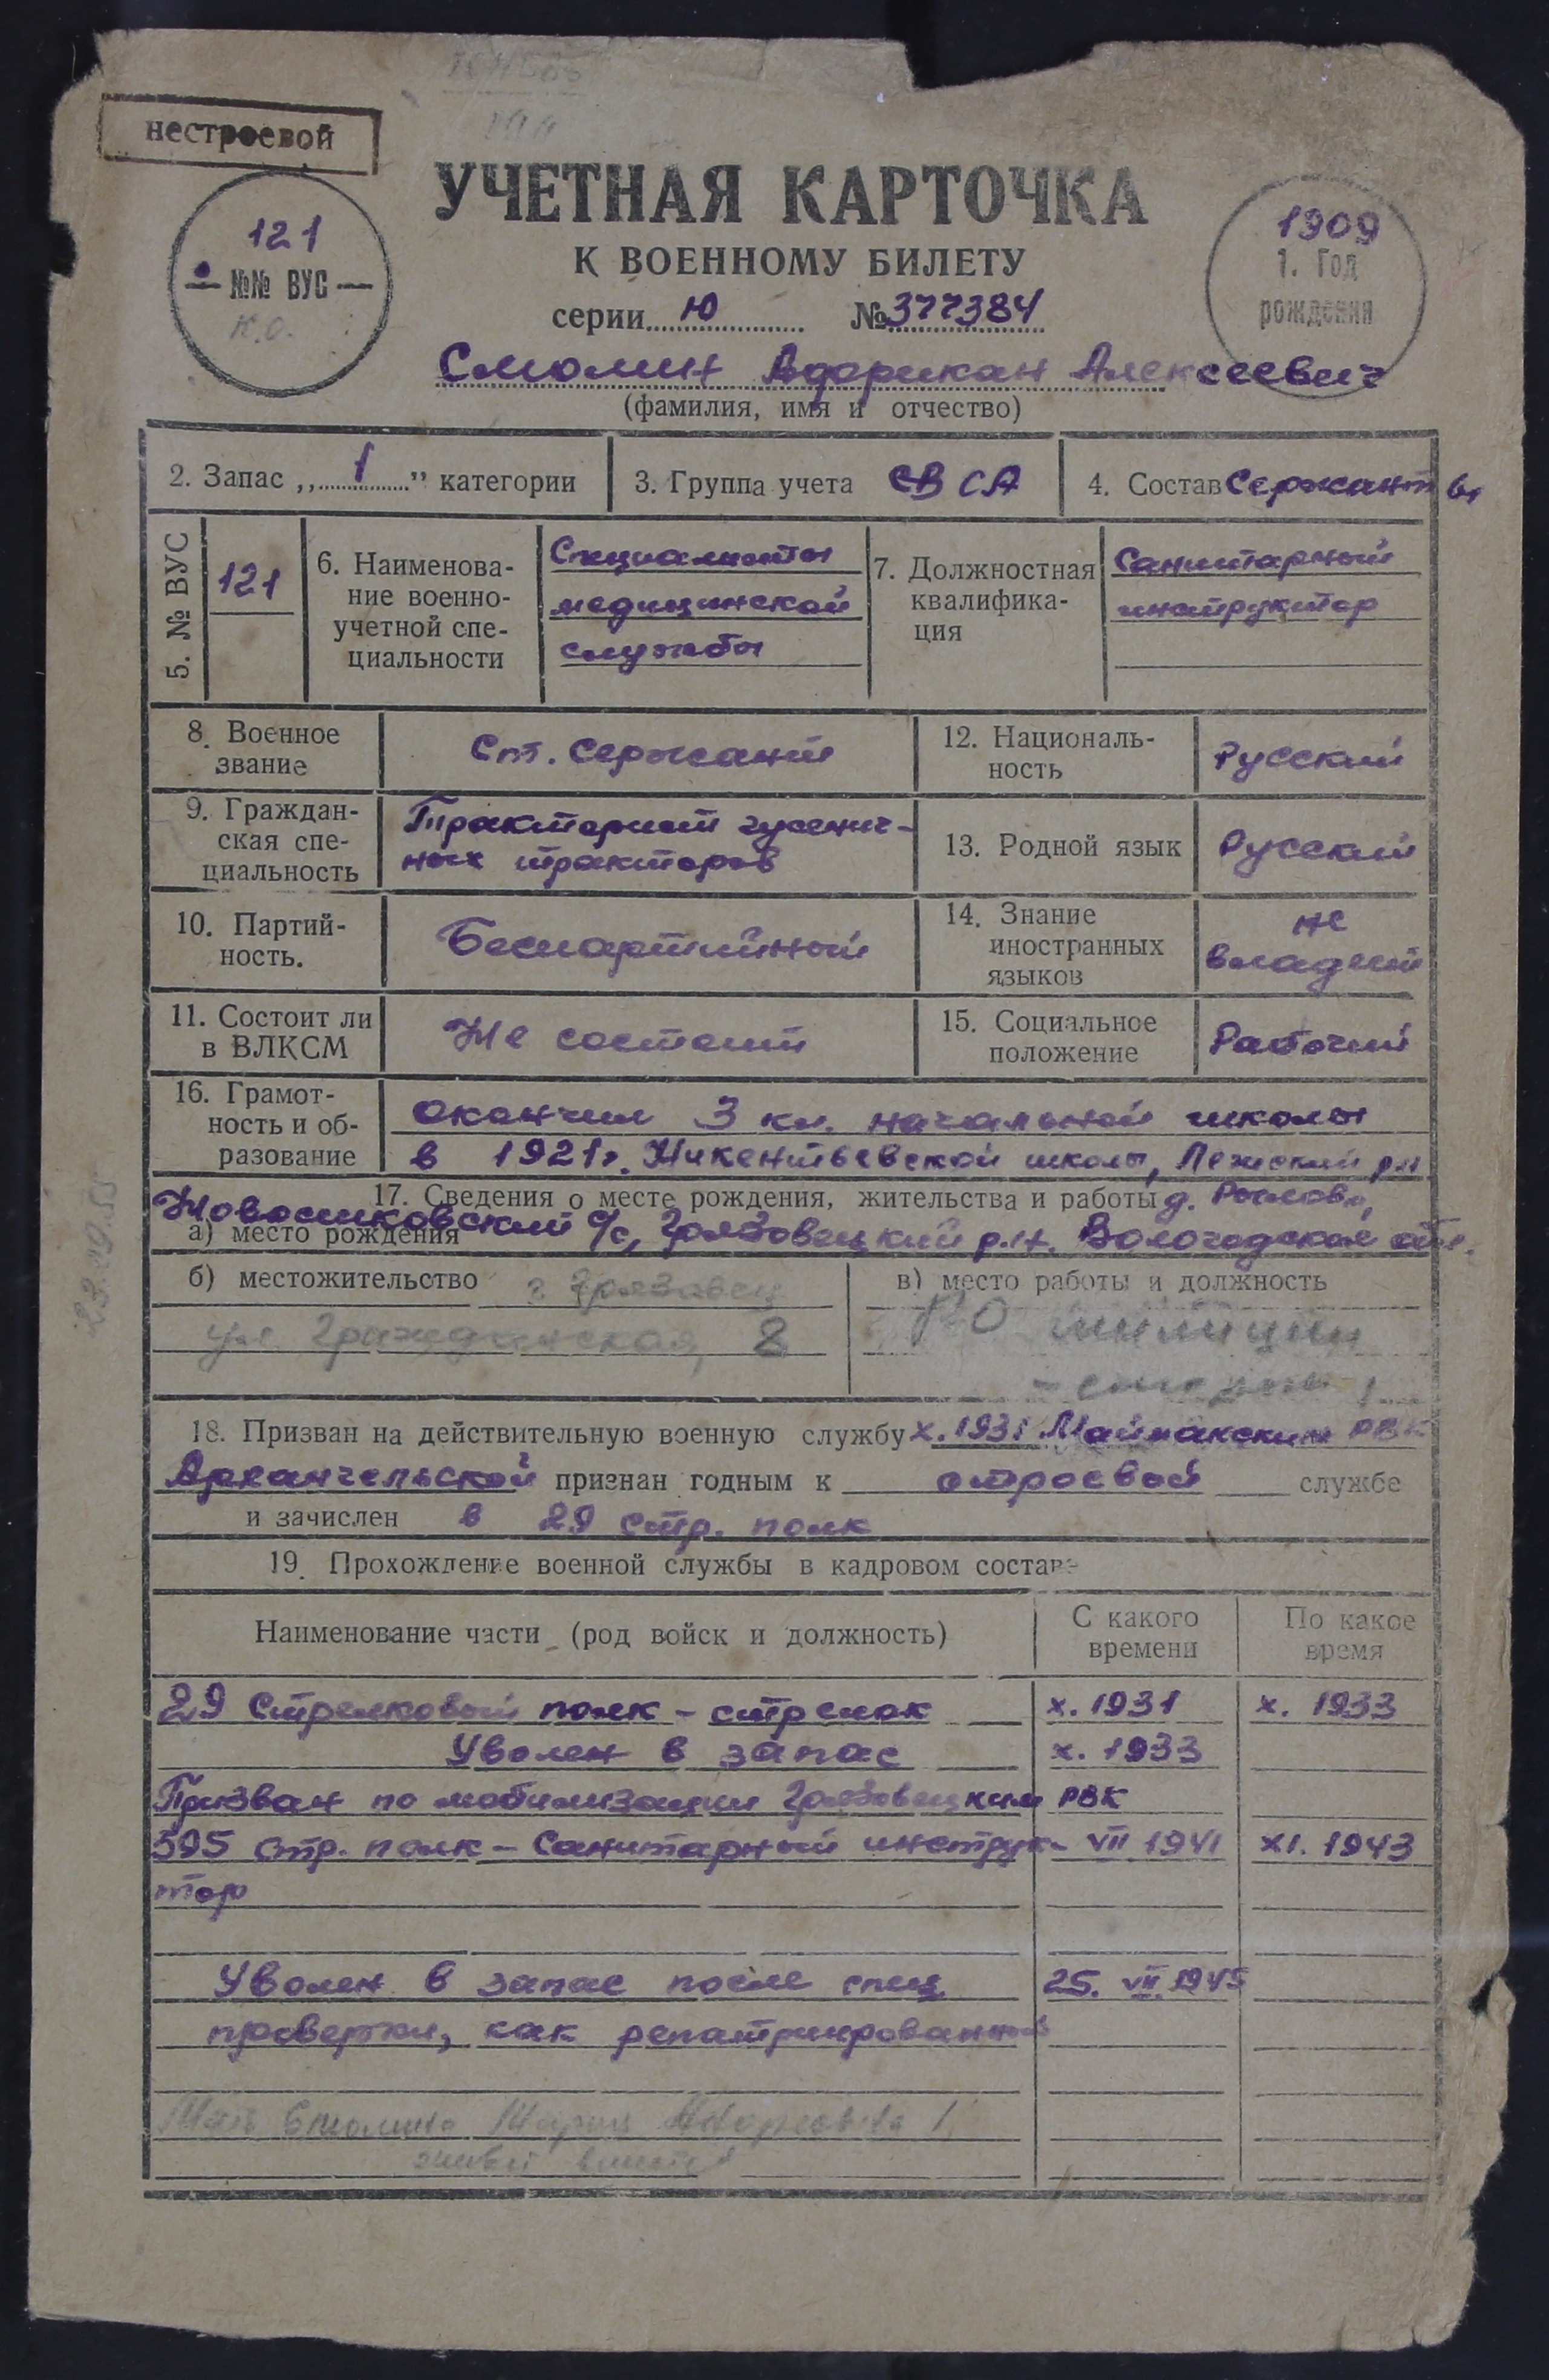 нестроевой
УЧЕТНАЯ КАРТОЧКА
К ВОЕННОМУ БИЛЕТУ
серии Ю № 377384
121
№№ ВУС
К.О.
1909
1. Год
рождения
Смолин Адорикан Алексеевич
(фамилия, имя и отчество)
2. Запас „1” категории
3. Группа учета СВ СА
4. Состав Сержанты
5. № ВУС
121
6. Наименова-
ние военно-
учетной спе-
циальности
Специалисты
медицинской
службы
7. Должностная
квалифика-
ция
Санитарный
инструктор
8. Военное
звание
Ст. Сержант
12. Националь-
ность
Русский
9. Граждан-
ская спе-
циальность
Тракторист гусенич-
ных тракторов
13. Родной язык
Русский
10. Партий-
ность.
Беспартийный
14. Знание
иностранных
языков
не
владеет
11. Состоит ли
в ВЛКСМ
Не состоит
15. Социальное
положение
Рабочий
16. Грамот-
ность и об-
разование
окончил 3 кл. начальной школы
в 1921г. Никентьевской школы, Лежский р-н
17. Сведения о месте рождения, жительства и работы д.
а) место рождения
Новосиковский с/с, Грязовецкий р.н. Вологодской обл.
б) местожительство г. Грязовец
ул. Гражданская, 8
в) место работы и должность
РО милиции
18. Призван на действительную военную службу X. 1931 Маймакским РВК
Архангельской признан годным к строевой службе
и зачислен в 29 стр. полк
19. Прохождение военной службы в кадровом составе
Наименование части (род войск и должность)
С какого
времени
По какое
время
29 Стрелковый полк – стрелок х. 1931 х. 1933
Уволен в запас х. 1933
Призван по мобилизации Грязовецким РВК
595 стр. полк – Санитарный инструк- VII 1941 XI. 1943
тор
Уволен в запас после спец 25. VII. 1945
проверки, как репатриированный
Мать Смолина Мария
живет вместе